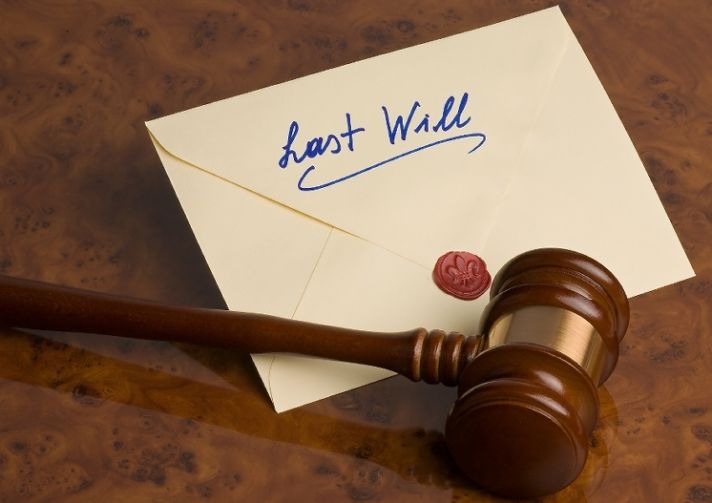 Last Will